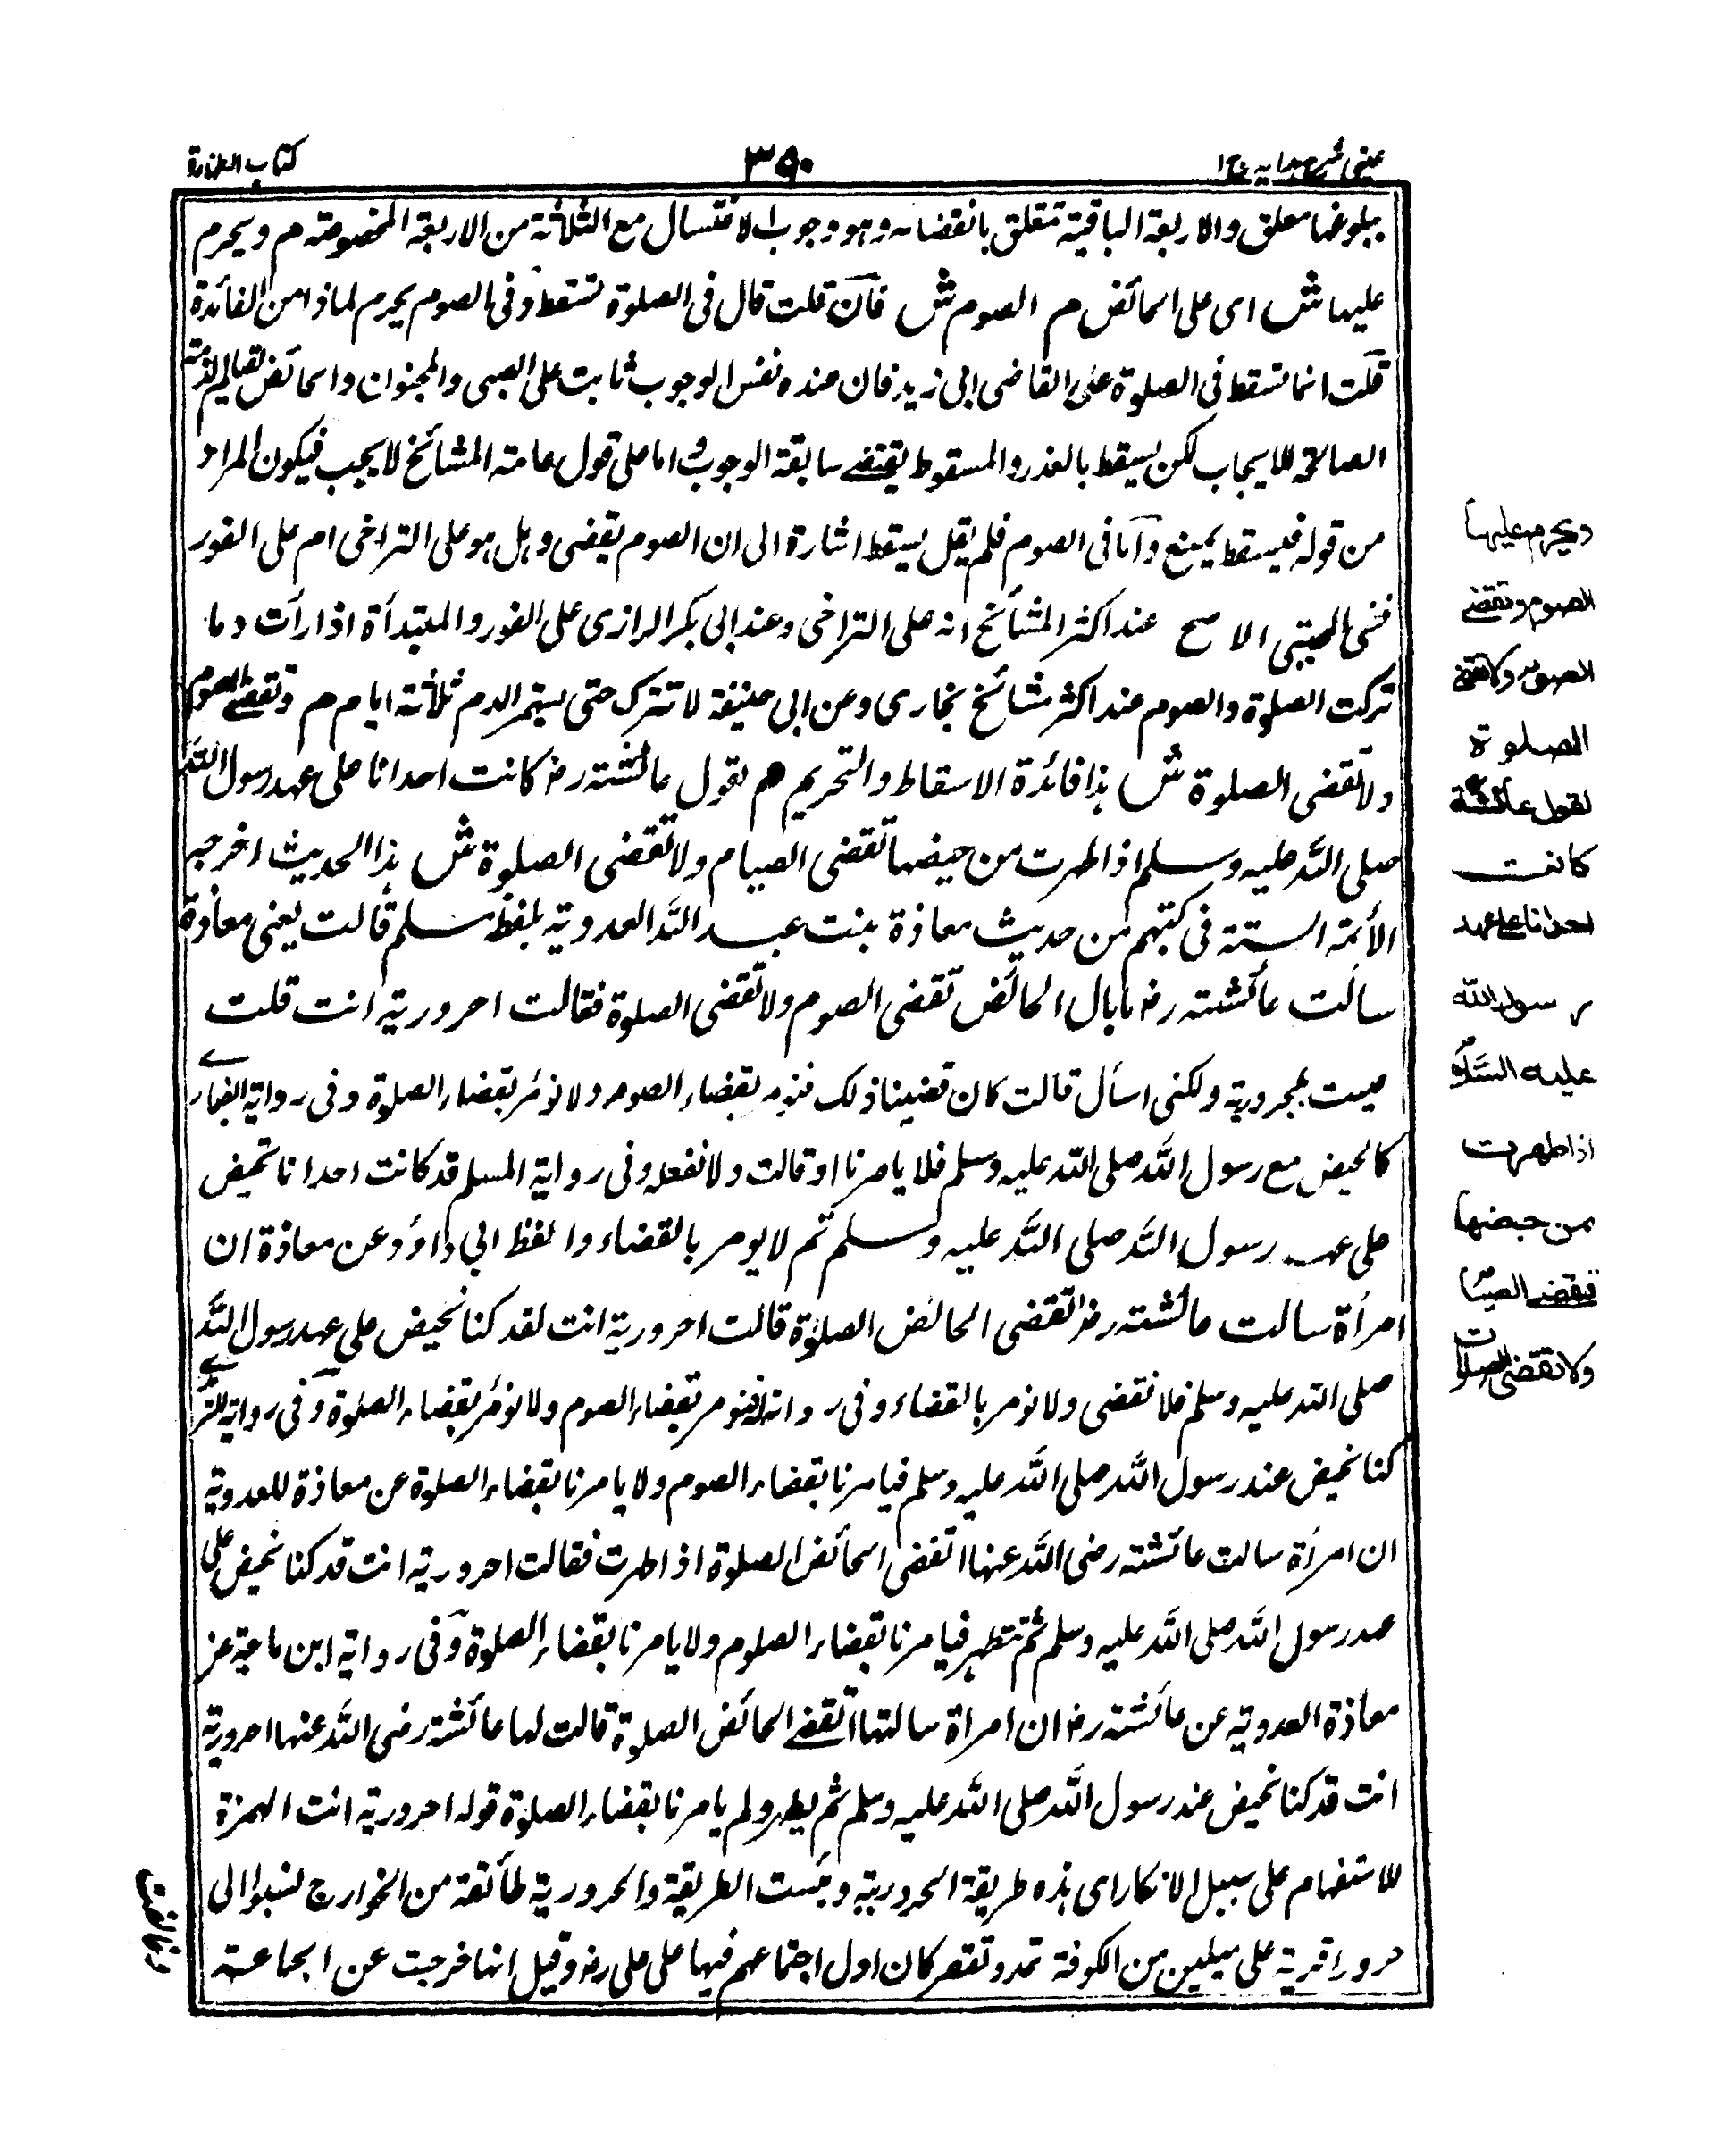 عينى شرح هدايه ج ١
٣٥٠
كتاب الطهارة
ببلوغها معلق والاربعة الباقية تتعلق بانقضائه وهو وجوب الاغتسال مع الثلاثة من الاربعة المخصوصة م ويحرم
عليها ش اى على الحائض م الصوم ش فان قلت قال فى الصلوة تسقط وفى الصوم يحرم لماذا من الفائدة
قلت انما تسقط فى الصلوة على القاضى ابى زيد فان عنده نفس الوجوب ثابت على الصبى والمجنون والحائض لقيام الذمة
الصالحة للايجاب لكن يسقط بالعذر والسقوط يقتضى سابقة الوجوب واما على قول عامة المشائخ لا يجب فيكون المراد
من قوله فيسقط يمنع واما فى الصوم فلم يقل يسقط اشارة الى ان الصوم يقضى وهل هو على التراخى ام على الفور
ففى المجتبى الاصح عند اكثر المشائخ انه على التراخى وعند ابى بكر الرازى على الفور والمبتدأة اذا رأت دما
تركت الصلوة والصوم عند اكثر مشائخ بخارى وعن ابى حنيفة لا تترك حتى يستمر الدم ثلاثة ايام م وتقضى الصوم
ولا تقضى الصلوة ش هذا فائدة الاسقاط والتحريم م لقول عائشة رض كانت احدانا على عهد رسول الله
صلى الله عليه وسلم اذا طهرت من حيضها تقضى الصيام ولا تقضى الصلوة ش هذا الحديث اخرجه
الأئمة الستة فى كتبهم من حديث معاذة بنت عبد الله العدوية بلفظ مسلم قالت يعنى معاذة
سالت عائشة رض ما بال الحائض تقضى الصوم ولا تقضى الصلوة فقالت احرورية انت قلت
ليست بحرورية ولكنى اسأل قالت كان قضينا ذلك فنومر بقضاء الصوم ولا نومر بقضاء الصلوة وفى رواية البخارى
كنا نحيض مع رسول الله صلى الله عليه وسلم فلا يامرنا او قالت ولا نفعله وفى رواية المسلم قد كانت احدانا تحيض
على عهد رسول الله صلى الله عليه وسلم ثم لا يومر بالقضاء والفظ ابى داؤد عن معاذة ان
امرأة سالت عائشة رض اتقضى الحائض الصلوة قالت احرورية انت لقد كنا نحيض على عهد رسول الله
صلى الله عليه وسلم فلا نقضى ولا نومر بالقضاء وفى رواية له فنومر بقضاء الصوم ولا نومر بقضاء الصلوة وفى رواية الترمذى
كنا نحيض عند رسول الله صلى الله عليه وسلم فيامرنا بقضاء الصوم ولا يامرنا بقضاء الصلوة عن معاذة للعدوية
ان امرأة سالت عائشة رضى الله عنها اتقضى الحائض الصلوة اذا طهرت فقالت احرورية انت قد كنا نحيض على
عهد رسول الله صلى الله عليه وسلم ثم تتطهر فيامرنا بقضاء الصلوم ولا يامرنا بقضاء الصلوة وفى رواية ابن ماجة عن
معاذة العدوية عن عائشة رض ان امراة سالتها اتقضى الحائض الصلوة قالت لها عائشة رضى الله عنها احرورية
انت قد كنا نحيض عند رسول الله صلى الله عليه وسلم ثم يطهر ولم يامرنا بقضاء الصلوة قوله احرورية انت الهمزة
للاستفهام على سبيل الانكار اى هذه طريقة الحرورية وبئست الطريقة والحرورية طائفة من الخوارج نسبوا الى
حرورا قرية على ميلين من الكوفة تمد وتقصر كان اول اجتماعهم فيها على على رض وقيل انها خرجت عن الجماعة
ويحرم عليها
الصوم وتقضى
الصوم ولا تقضى
الصلوة
لقول عائشة
كانت
احدانا على عهد
رسول الله
عليه السلام
اذا طهرت
من حيضها
تقضى الصيام
ولا تقضى الصلوات